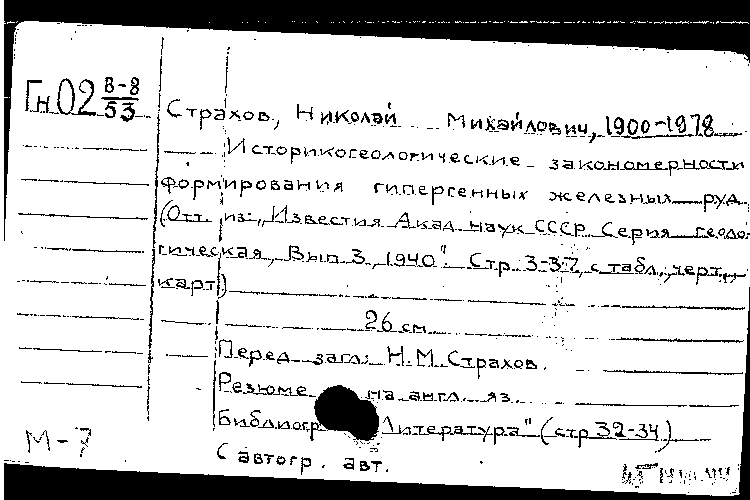 Гн 02 В-8/53
Страхов, Николай Михайлович, 1900-1978
Историкогеологические закономерности
формирования гипергенных железных руд.
(Отт. из: „Известия Акад. наук СССР. Серия геоло-
гическая, Вып 3, 1940". Стр. 3-37, с табл., черт.,
карт)
26 см
Перед загл: Н.М. Страхов.
Резюме на англ. яз.
Библиогр „Литература" (стр 32-34)
С автогр. авт.
М-7